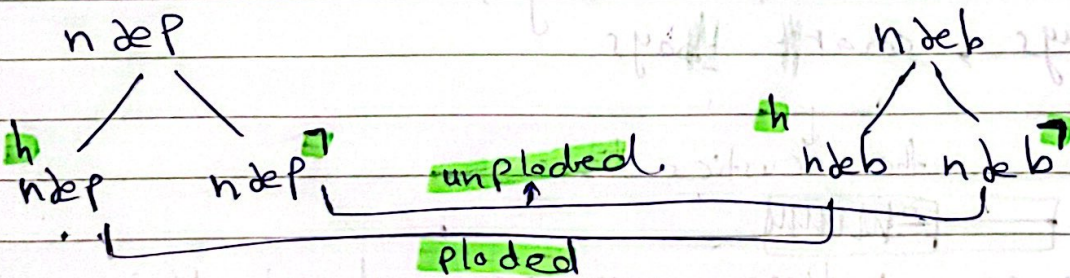 næp næb
h ㄱ h ㄱ
næp næp unploded næb næb
ploded